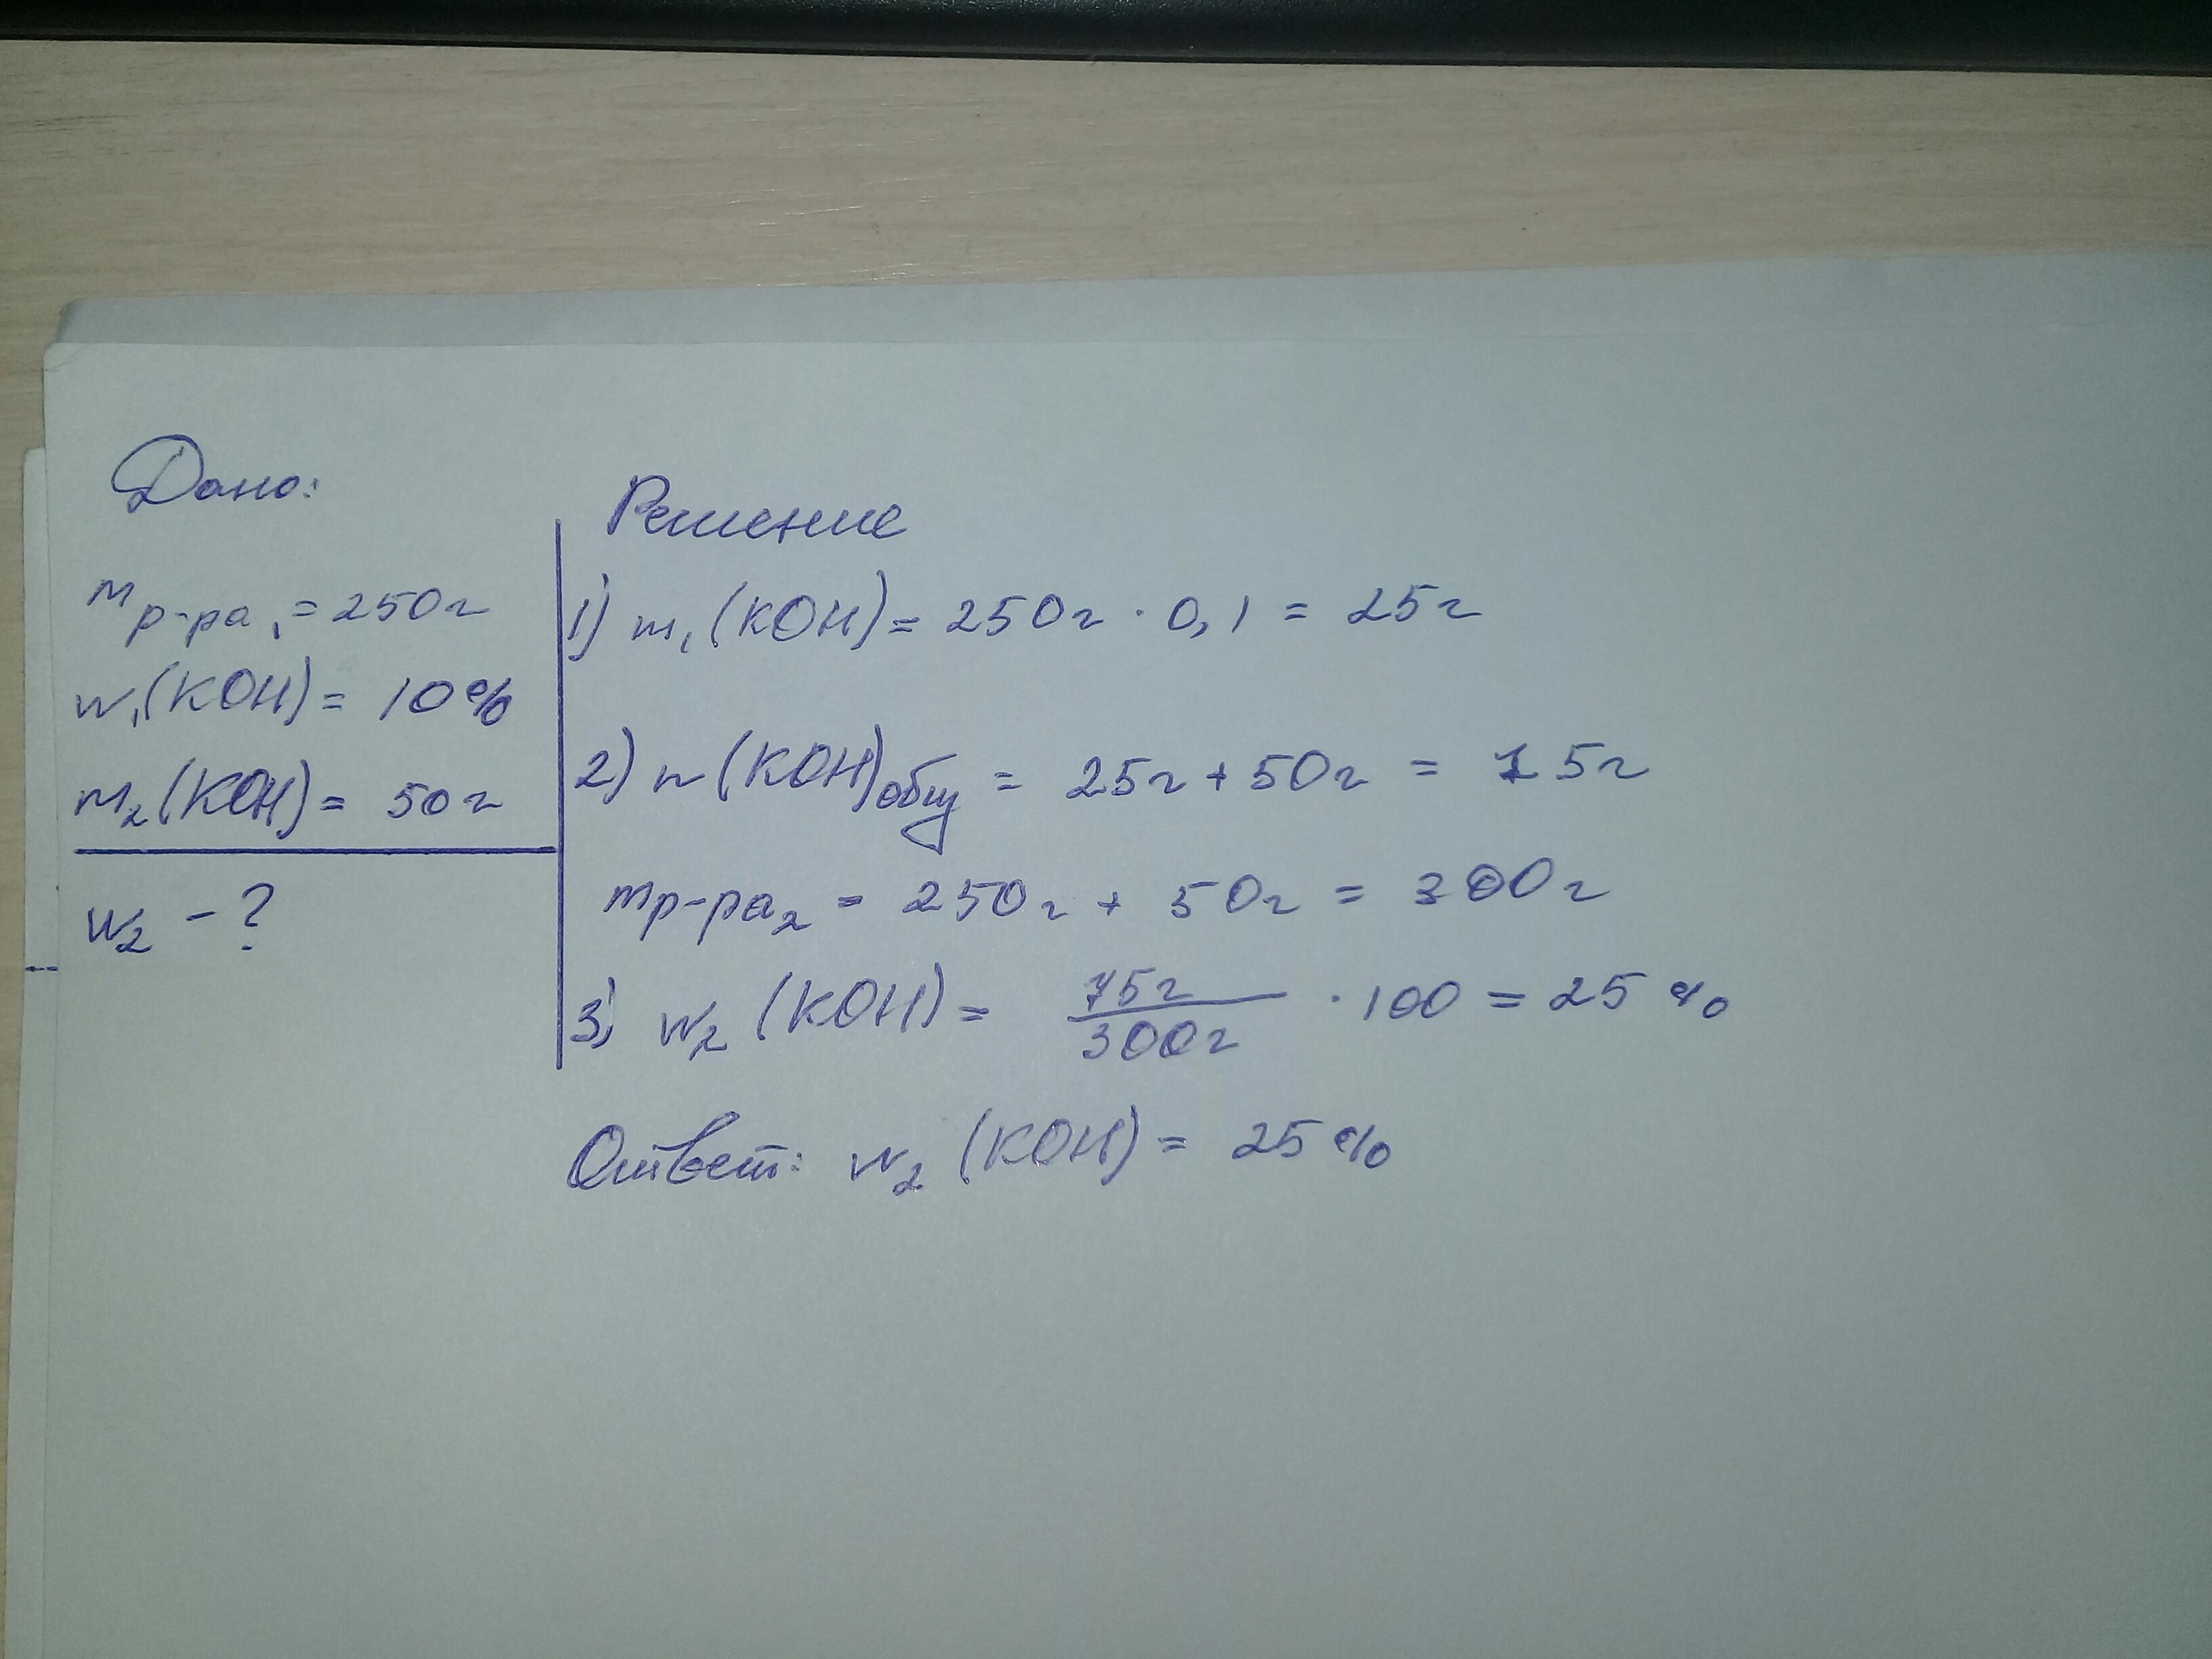 Дано:
mр-ра₁ = 250г
w₁(KOH) = 10%
m₂(KOH) = 50г
w₂ - ?
Решение
1) m₁(KOH) = 250г · 0,1 = 25г
2) m(KOH)общ = 25г + 50г = 75г
mр-ра₂ = 250г + 50г = 300г
3) w₂(KOH) = 75г/300г · 100 = 25%
Ответ: w₂(KOH) = 25%